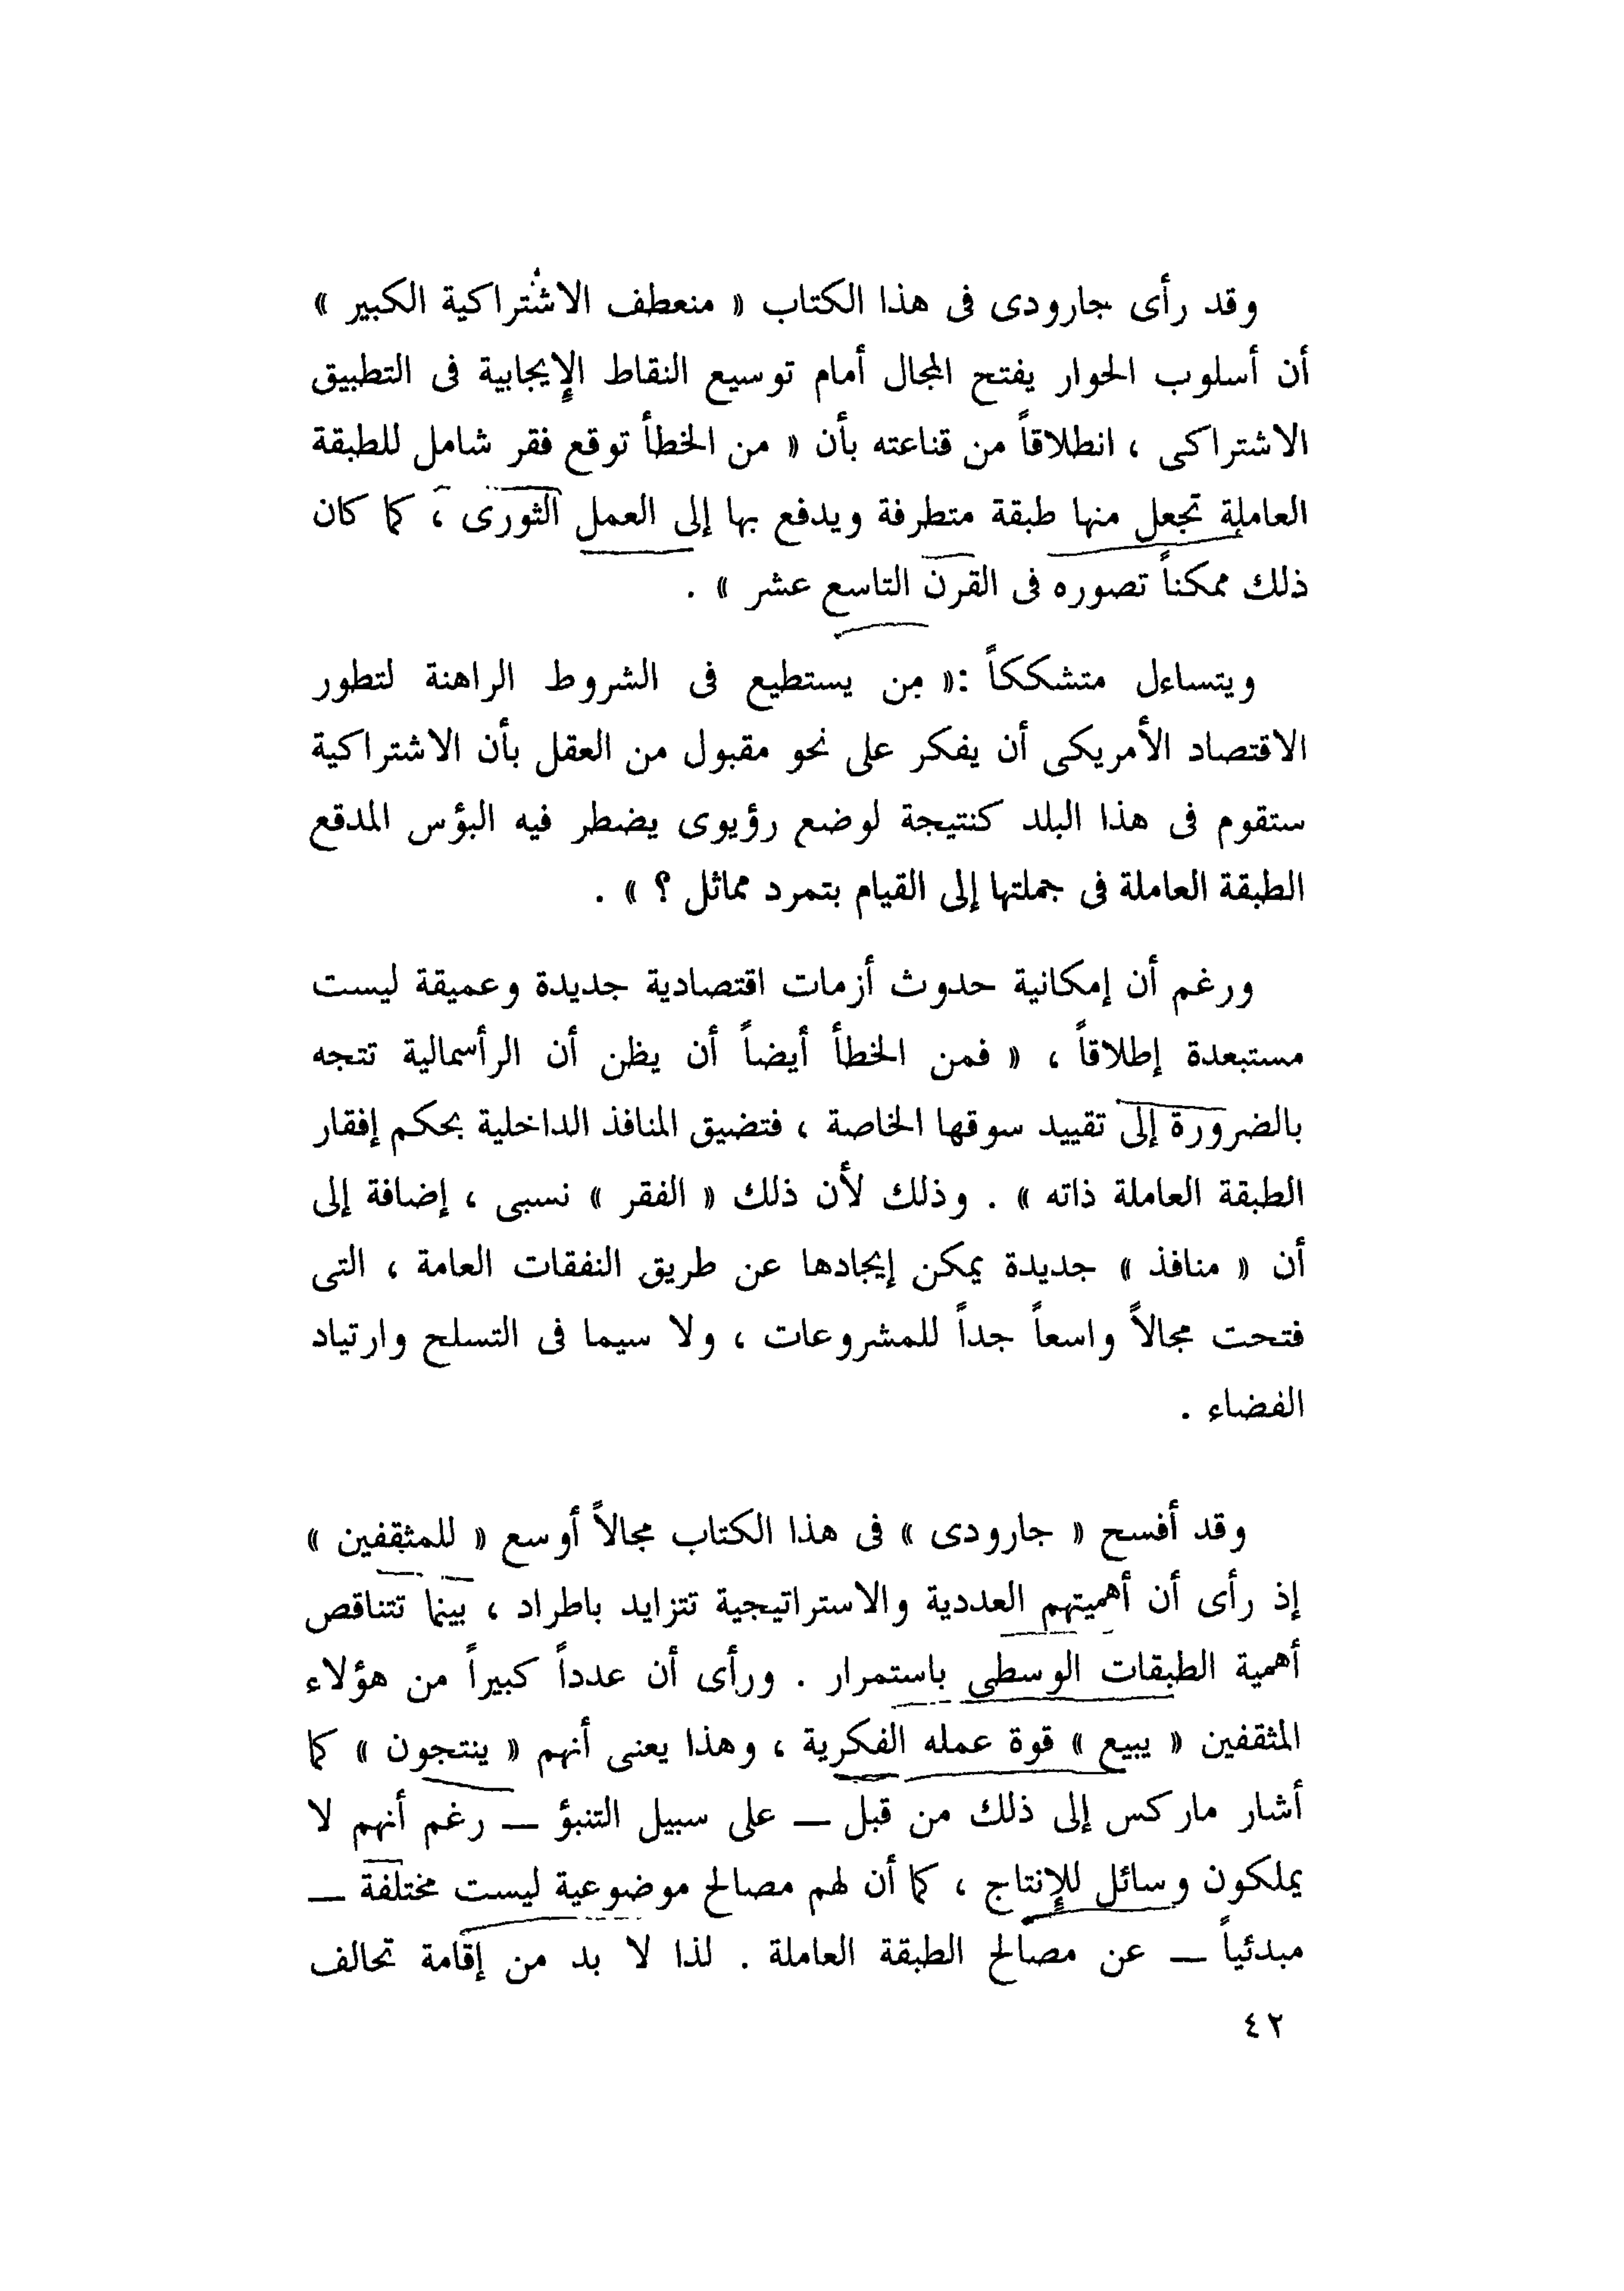 وقد رأى جارودى فى هذا الكتاب « منعطف الاشتراكية الكبير »
أن أسلوب الحوار يفتح المجال أمام توسيع النقاط الإيجابية فى التطبيق
الاشتراكى ، انطلاقاً من قناعته بأن « من الخطأ توقع فقر شامل للطبقة
العاملة تجعل منها طبقة متطرفة ويدفع بها إلى العمل الثورى ، كما كان
ذلك ممكناً تصوره فى القرن التاسع عشر » .
ويتساءل متشككاً :« من يستطيع فى الشروط الراهنة لتطور
الاقتصاد الأمريكى أن يفكر على نحو مقبول من العقل بأن الاشتراكية
ستقوم فى هذا البلد كنتيجة لوضع رؤيوى يضطر فيه البؤس المدقع
الطبقة العاملة فى جملتها إلى القيام بتمرد مماثل ؟ » .
ورغم أن إمكانية حدوث أزمات اقتصادية جديدة وعميقة ليست
مستبعدة إطلاقاً ، « فمن الخطأ أيضاً أن يظن أن الرأسمالية تتجه
بالضرورة إلى تقييد سوقها الخاصة ، فتضيق المنافذ الداخلية بحكم إفقار
الطبقة العاملة ذاته » . وذلك لأن ذلك « الفقر » نسبى ، إضافة إلى
أن « منافذ » جديدة يمكن إيجادها عن طريق النفقات العامة ، التى
فتحت مجالاً واسعاً جداً للمشروعات ، ولا سيما فى التسلح وارتياد
الفضاء .
وقد أفسح « جارودى » فى هذا الكتاب مجالاً أوسع « للمثقفين »
إذ رأى أن أهميتهم العددية والاستراتيجية تتزايد باطراد ، بينما تتناقص
أهمية الطبقات الوسطى باستمرار . ورأى أن عدداً كبيراً من هؤلاء
المثقفين « يبيع » قوة عمله الفكرية ، وهذا يعنى أنهم « ينتجون » كما
أشار ماركس إلى ذلك من قبل — على سبيل التنبؤ — رغم أنهم لا
يملكون وسائل للإنتاج ، كما أن لهم مصالح موضوعية ليست مختلفة —
مبدئياً — عن مصالح الطبقة العاملة . لذا لا بد من إقامة تحالف
٤٢